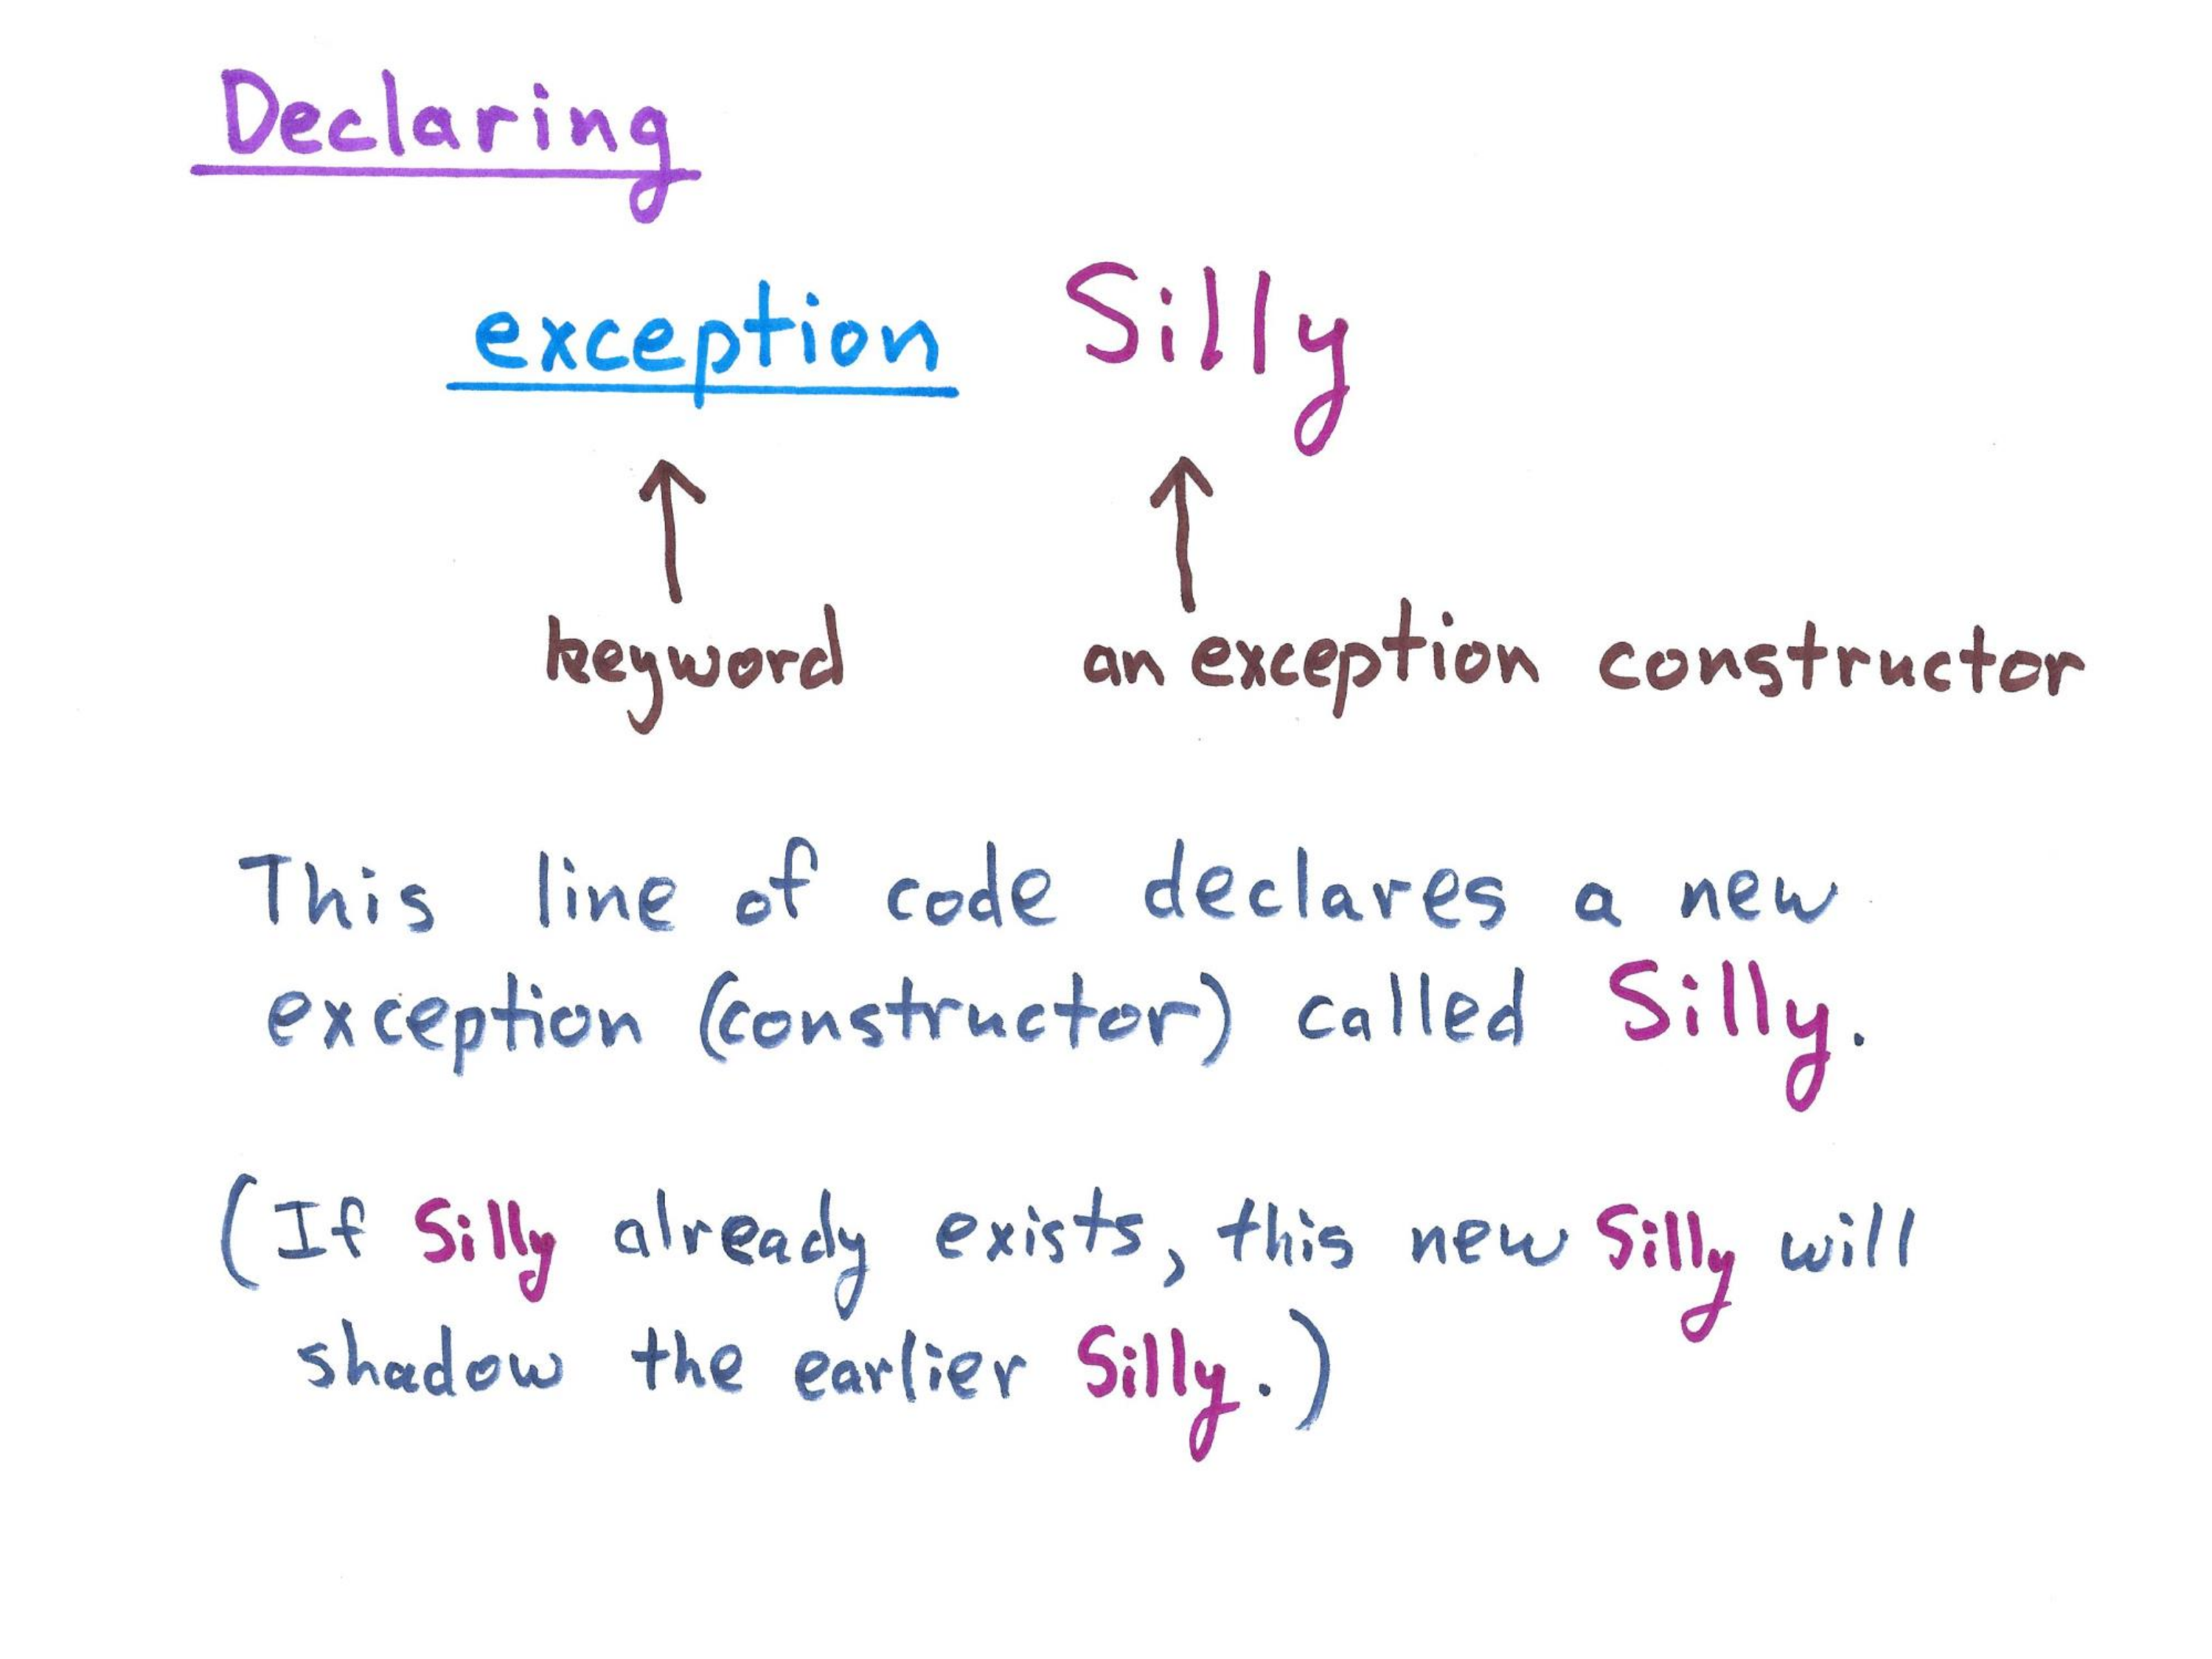 Declaring
exception Silly
keyword an exception constructor
This line of code declares a new
exception (constructor) called Silly.
(If Silly already exists, this new Silly will
shadow the earlier Silly.)